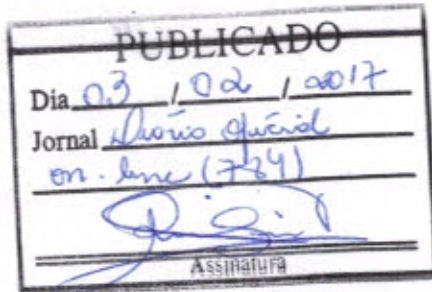 PUBLICADO
Dia 03 / 02 / 2017
Jornal Diário Oficial
on-line (734)
Assinatura